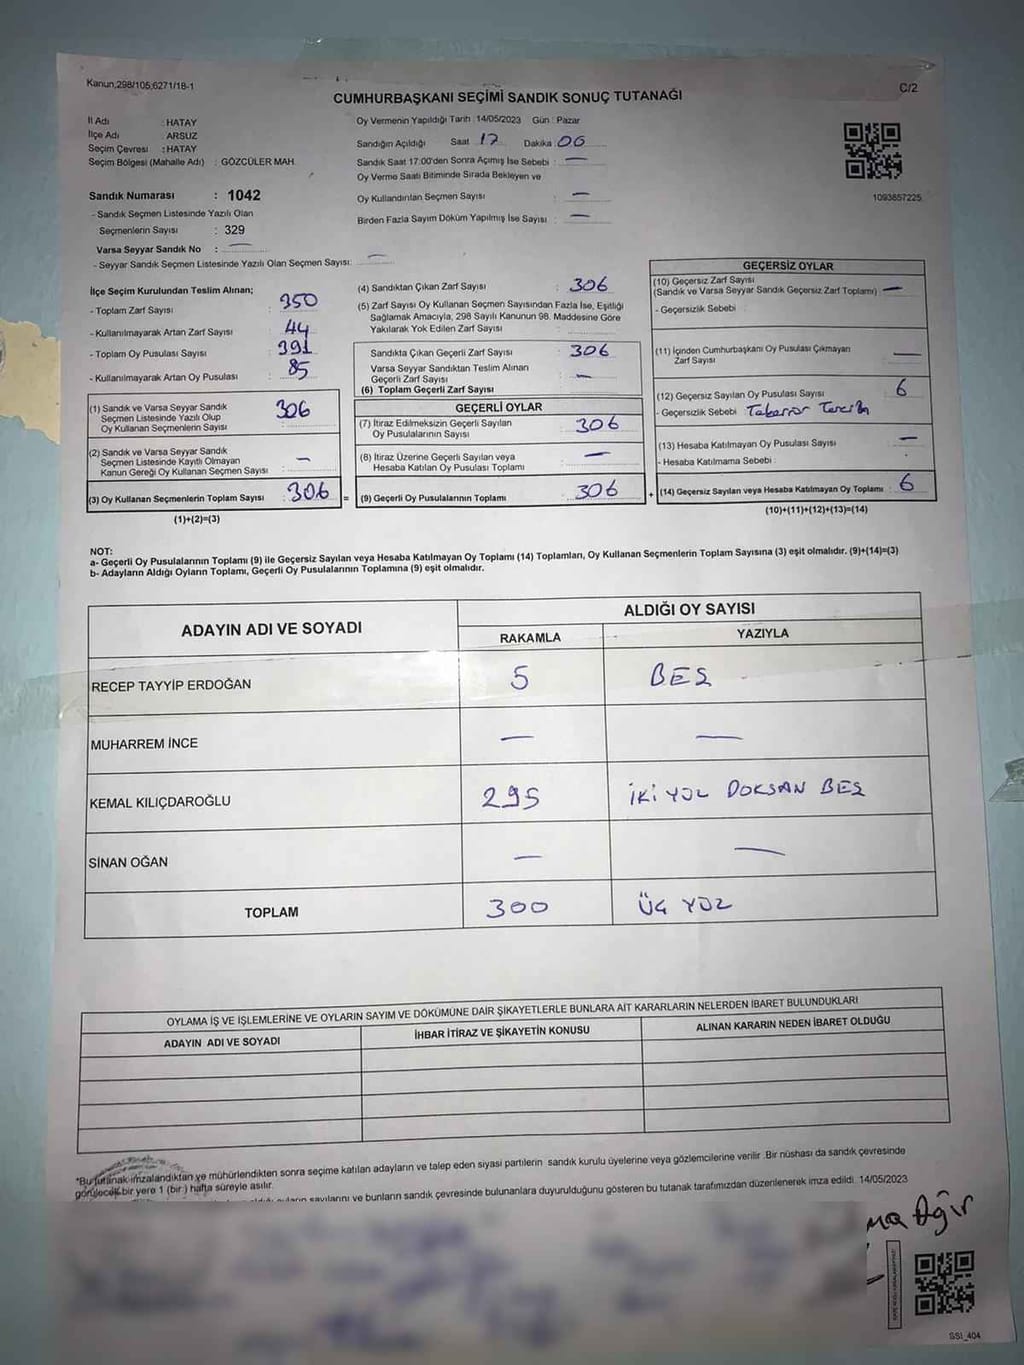 Kanun;298/105;6271/18-1
C/2
CUMHURBAŞKANI SEÇİMİ SANDIK SONUÇ TUTANAĞI
İl Adı : HATAY
İlçe Adı : ARSUZ
Seçim Çevresi : HATAY
Seçim Bölgesi (Mahalle Adı) : GÖZCÜLER MAH.
Sandık Numarası : 1042
- Sandık Seçmen Listesinde Yazılı Olan
Seçmenlerin Sayısı : 329
Varsa Seyyar Sandık No : —
- Seyyar Sandık Seçmen Listesinde Yazılı Olan Seçmen Sayısı: —
Oy Vermenin Yapıldığı Tarih : 14/05/2023 Gün : Pazar
Sandığın Açıldığı Saat 17 Dakika 00
Sandık Saat 17:00'den Sonra Açılmış İse Sebebi : —
Oy Verme Saati Bitiminde Sırada Bekleyen ve
Oy Kullandırılan Seçmen Sayısı : —
Birden Fazla Sayım Döküm Yapılmış İse Sayısı : —
1093857225
İlçe Seçim Kurulundan Teslim Alınan;
- Toplam Zarf Sayısı : 350
- Kullanılmayarak Artan Zarf Sayısı : 44
- Toplam Oy Pusulası Sayısı : 391
- Kullanılmayarak Artan Oy Pusulası : 85
(1) Sandık ve Varsa Seyyar Sandık
Seçmen Listesinde Yazılı Olup
Oy Kullanan Seçmenlerin Sayısı : 306
(2) Sandık ve Varsa Seyyar Sandık
Seçmen Listesinde Kayıtlı Olmayan
Kanun Gereği Oy Kullanan Seçmen Sayısı : —
(3) Oy Kullanan Seçmenlerin Toplam Sayısı : 306 =
(1)+(2)=(3)
(4) Sandıktan Çıkan Zarf Sayısı : 306
(5) Zarf Sayısı Oy Kullanan Seçmen Sayısından Fazla İse, Eşitliği
Sağlamak Amacıyla, 298 Sayılı Kanunun 98. Maddesine Göre
Yakılarak Yok Edilen Zarf Sayısı :
Sandıkta Çıkan Geçerli Zarf Sayısı : 306
Varsa Seyyar Sandıktan Teslim Alınan
Geçerli Zarf Sayısı : —
(6) Toplam Geçerli Zarf Sayısı
GEÇERLİ OYLAR
(7) İtiraz Edilmeksizin Geçerli Sayılan
Oy Pusulalarının Sayısı : 306
(8) İtiraz Üzerine Geçerli Sayılan veya
Hesaba Katılan Oy Pusulası Toplamı : —
(9) Geçerli Oy Pusulalarının Toplamı : 306 +
GEÇERSİZ OYLAR
(10) Geçersiz Zarf Sayısı
(Sandık ve Varsa Seyyar Sandık Geçersiz Zarf Toplamı) : —
- Geçersizlik Sebebi :
(11) İçinden Cumhurbaşkanı Oy Pusulası Çıkmayan
Zarf Sayısı : —
(12) Geçersiz Sayılan Oy Pusulası Sayısı : 6
- Geçersizlik Sebebi :
(13) Hesaba Katılmayan Oy Pusulası Sayısı : —
- Hesaba Katılmama Sebebi :
(14) Geçersiz Sayılan veya Hesaba Katılmayan Oy Toplamı : 6
(10)+(11)+(12)+(13)=(14)
NOT:
a- Geçerli Oy Pusulalarının Toplamı (9) ile Geçersiz Sayılan veya Hesaba Katılmayan Oy Toplamı (14) Toplamları, Oy Kullanan Seçmenlerin Toplam Sayısına (3) eşit olmalıdır. (9)+(14)=(3)
b- Adayların Aldığı Oyların Toplamı, Geçerli Oy Pusulalarının Toplamına (9) eşit olmalıdır.
ADAYIN ADI VE SOYADI
ALDIĞI OY SAYISI
RAKAMLA YAZIYLA
RECEP TAYYİP ERDOĞAN 5 BEŞ
MUHARREM İNCE — —
KEMAL KILIÇDAROĞLU 295 İKİ YÜZ DOKSAN BEŞ
SİNAN OĞAN — —
TOPLAM 300 ÜÇ YÜZ
OYLAMA İŞ VE İŞLEMLERİNE VE OYLARIN SAYIM VE DÖKÜMÜNE DAİR ŞİKAYETLERLE BUNLARA AİT KARARLARIN NELERDEN İBARET BULUNDUKLARI
ADAYIN ADI VE SOYADI İHBAR İTİRAZ VE ŞİKAYETİN KONUSU ALINAN KARARIN NEDEN İBARET OLDUĞU
*Bu tutanak imzalandıktan ve mühürlendikten sonra seçime katılan adayların ve talep eden siyasi partilerin sandık kurulu üyelerine veya gözlemcilerine verilir. Bir nüshası da sandık çevresinde
görülecek bir yere 1 (bir) hafta süreyle asılır.
oyların sayılarını ve bunların sandık çevresinde bulunanlara duyurulduğunu gösteren bu tutanak tarafımızdan düzenlenerek imza edildi. 14/05/2023
ma Ağır
SSI_404